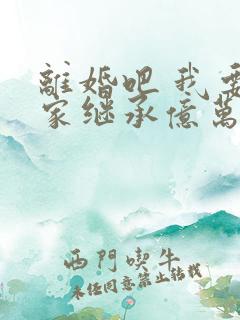 離婚吧 我要
家继承億萬
西門喫牛
未经同意禁止转载